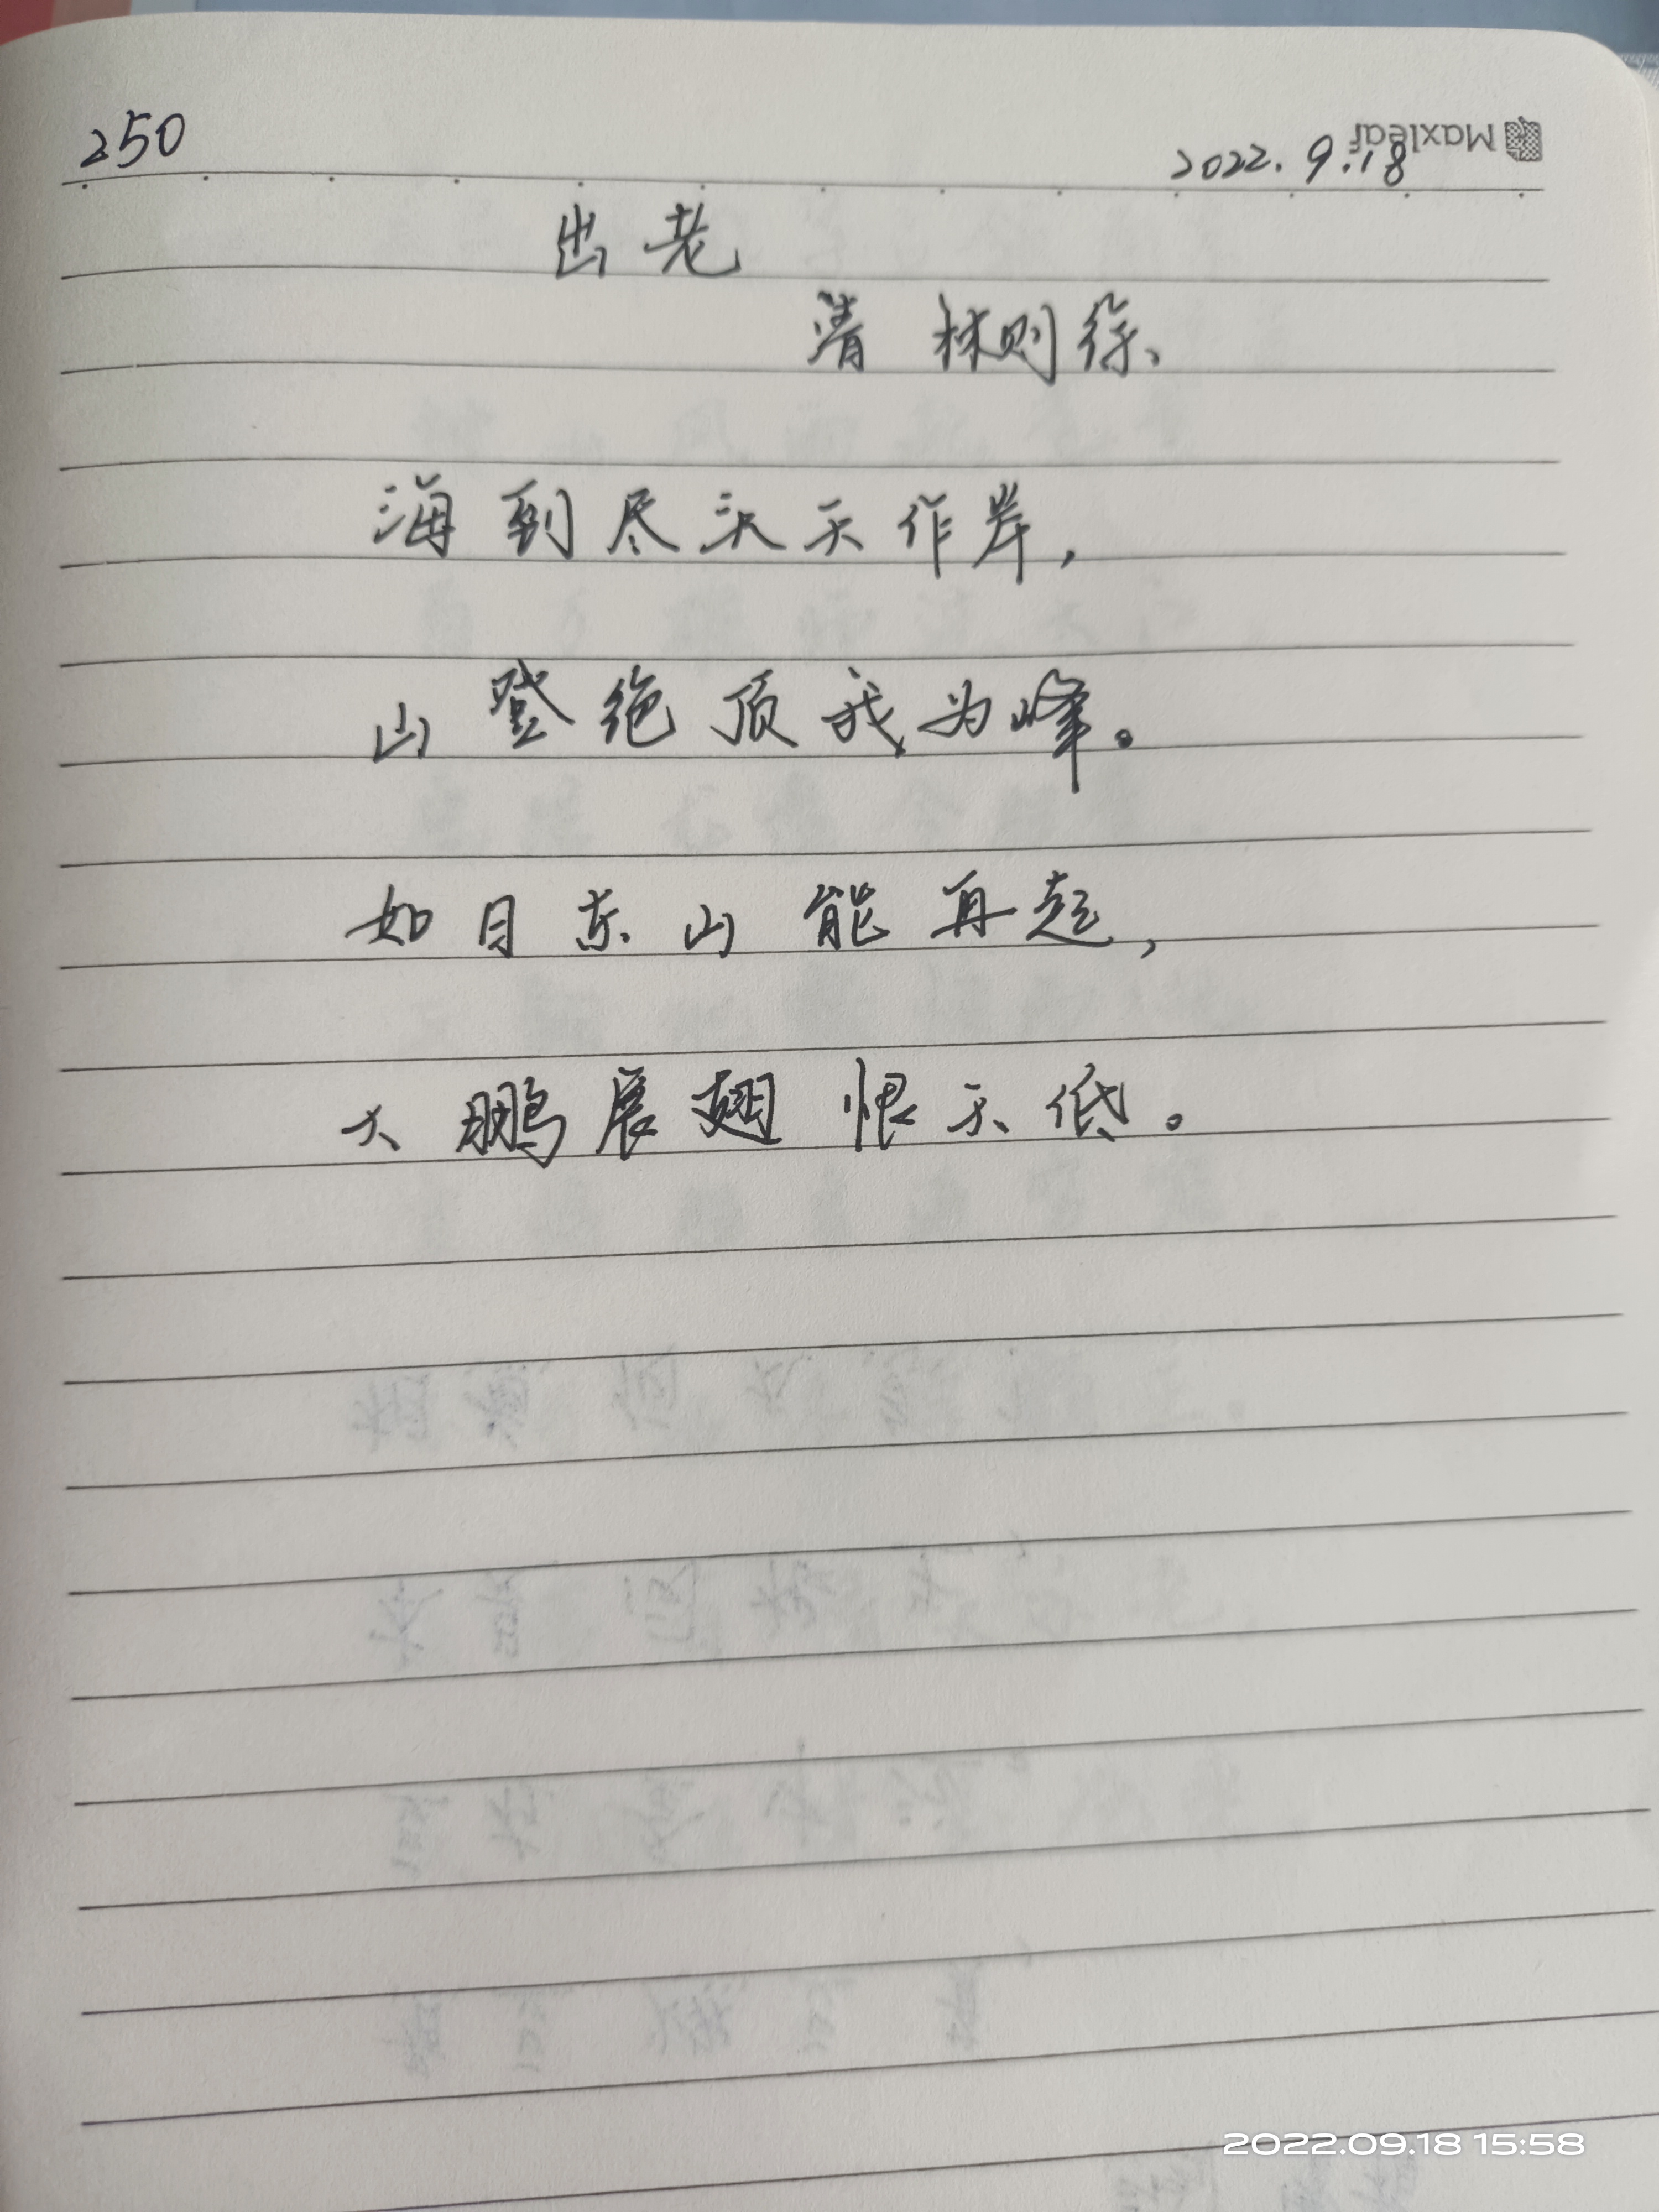 250
2022.9.18
Maxleaf
出老
清 林则徐
海到尽头天作岸，
山登绝顶我为峰。
如日东山能再起，
大鹏展翅恨天低。
2022.09.18 15:58